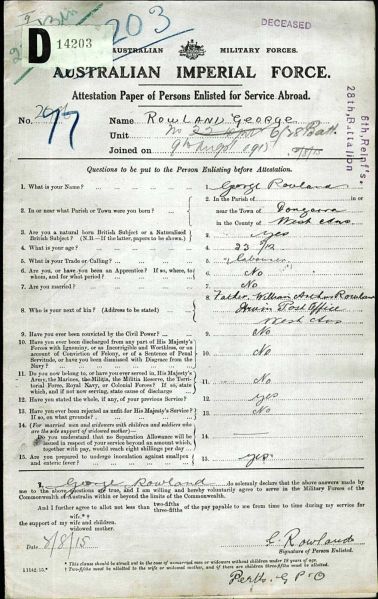 DECEASED
203
D 14203
AUSTRALIAN MILITARY FORCES.
AUSTRALIAN IMPERIAL FORCE.
Attestation Paper of Persons Enlisted for Service Abroad.
No. 77 Name ROWLAND GEORGE
Unit 6/28 Batt
Joined on 9th August 1915 9/8/15
6th Reinf's.
28th, Battalion
Questions to be put to the Person Enlisting before Attestation.
1. What is your Name? 1. George Rowland
2. In or near what Parish or Town were you born? 2. In the Parish of
near the Town of Dongarra
in the County of West Aus
3. Are you a natural born British Subject or a Naturalised
British Subject? (N.B.—If the latter, papers to be shown). 3. Yes
4. What is your age? 4. 23 1/12
5. What is your Trade or Calling? 5. Labourer
6. Are you, or have you been an Apprentice? If so, where, to
whom, and for what period? 6. No
7. Are you married? 7. No
8. Who is your next of kin? (Address to be stated) 8. Father William Arthur Rowland
Irwin Post Office
West Aus
9. Have you ever been convicted by the Civil Power? 9. No
10. Have you ever been discharged from any part of His Majesty's
Forces with Ignominy, or as Incorrigible and Worthless, or on
account of Conviction of Felony, or of a Sentence of Penal
Servitude, or have you been dismissed with Disgrace from the
Navy? 10. No
11. Do you now belong to, or have you ever served in, His Majesty's
Army, the Marines, the Militia, the Militia Reserve, the Territorial
Force, Royal Navy, or Colonial Forces? If so, state
which, and if not now serving, state cause of discharge 11. No
12. Have you stated the whole, if any, of your previous Service? 12. yes
13. Have you ever been rejected as unfit for His Majesty's Service?
If so, on what grounds? 13. No
14. (For married men and widowers with children and soldiers who
are the sole support of widowed mother)—
Do you understand that no Separation Allowance will be
issued in respect of your service beyond an amount which
together with pay, would reach eight shillings per day? 14.
15. Are you prepared to undergo inoculation against smallpox and
enteric fever? 15. yes
I, George Rowland do solemnly declare that the above answers made by
me to the above questions are true, and I am willing and hereby voluntarily agree to serve in the Military Forces of the
Commonwealth of Australia within or beyond the limits of the Commonwealth.
And I further agree to allot not less than two-fifths
three-fifths of the pay payable to me from time to time during my service for
the support of my wife*†
wife and children.
widowed mother.
Date 7/8/15 G Rowland
Signature of Person Enlisted.
* This clause should be struck out in the case of unmarried men or widowers without children under 18 years of age.
† Two-fifths must be allotted to the wife or widowed mother, and if there are children three-fifths must be allotted.
Perth G P O